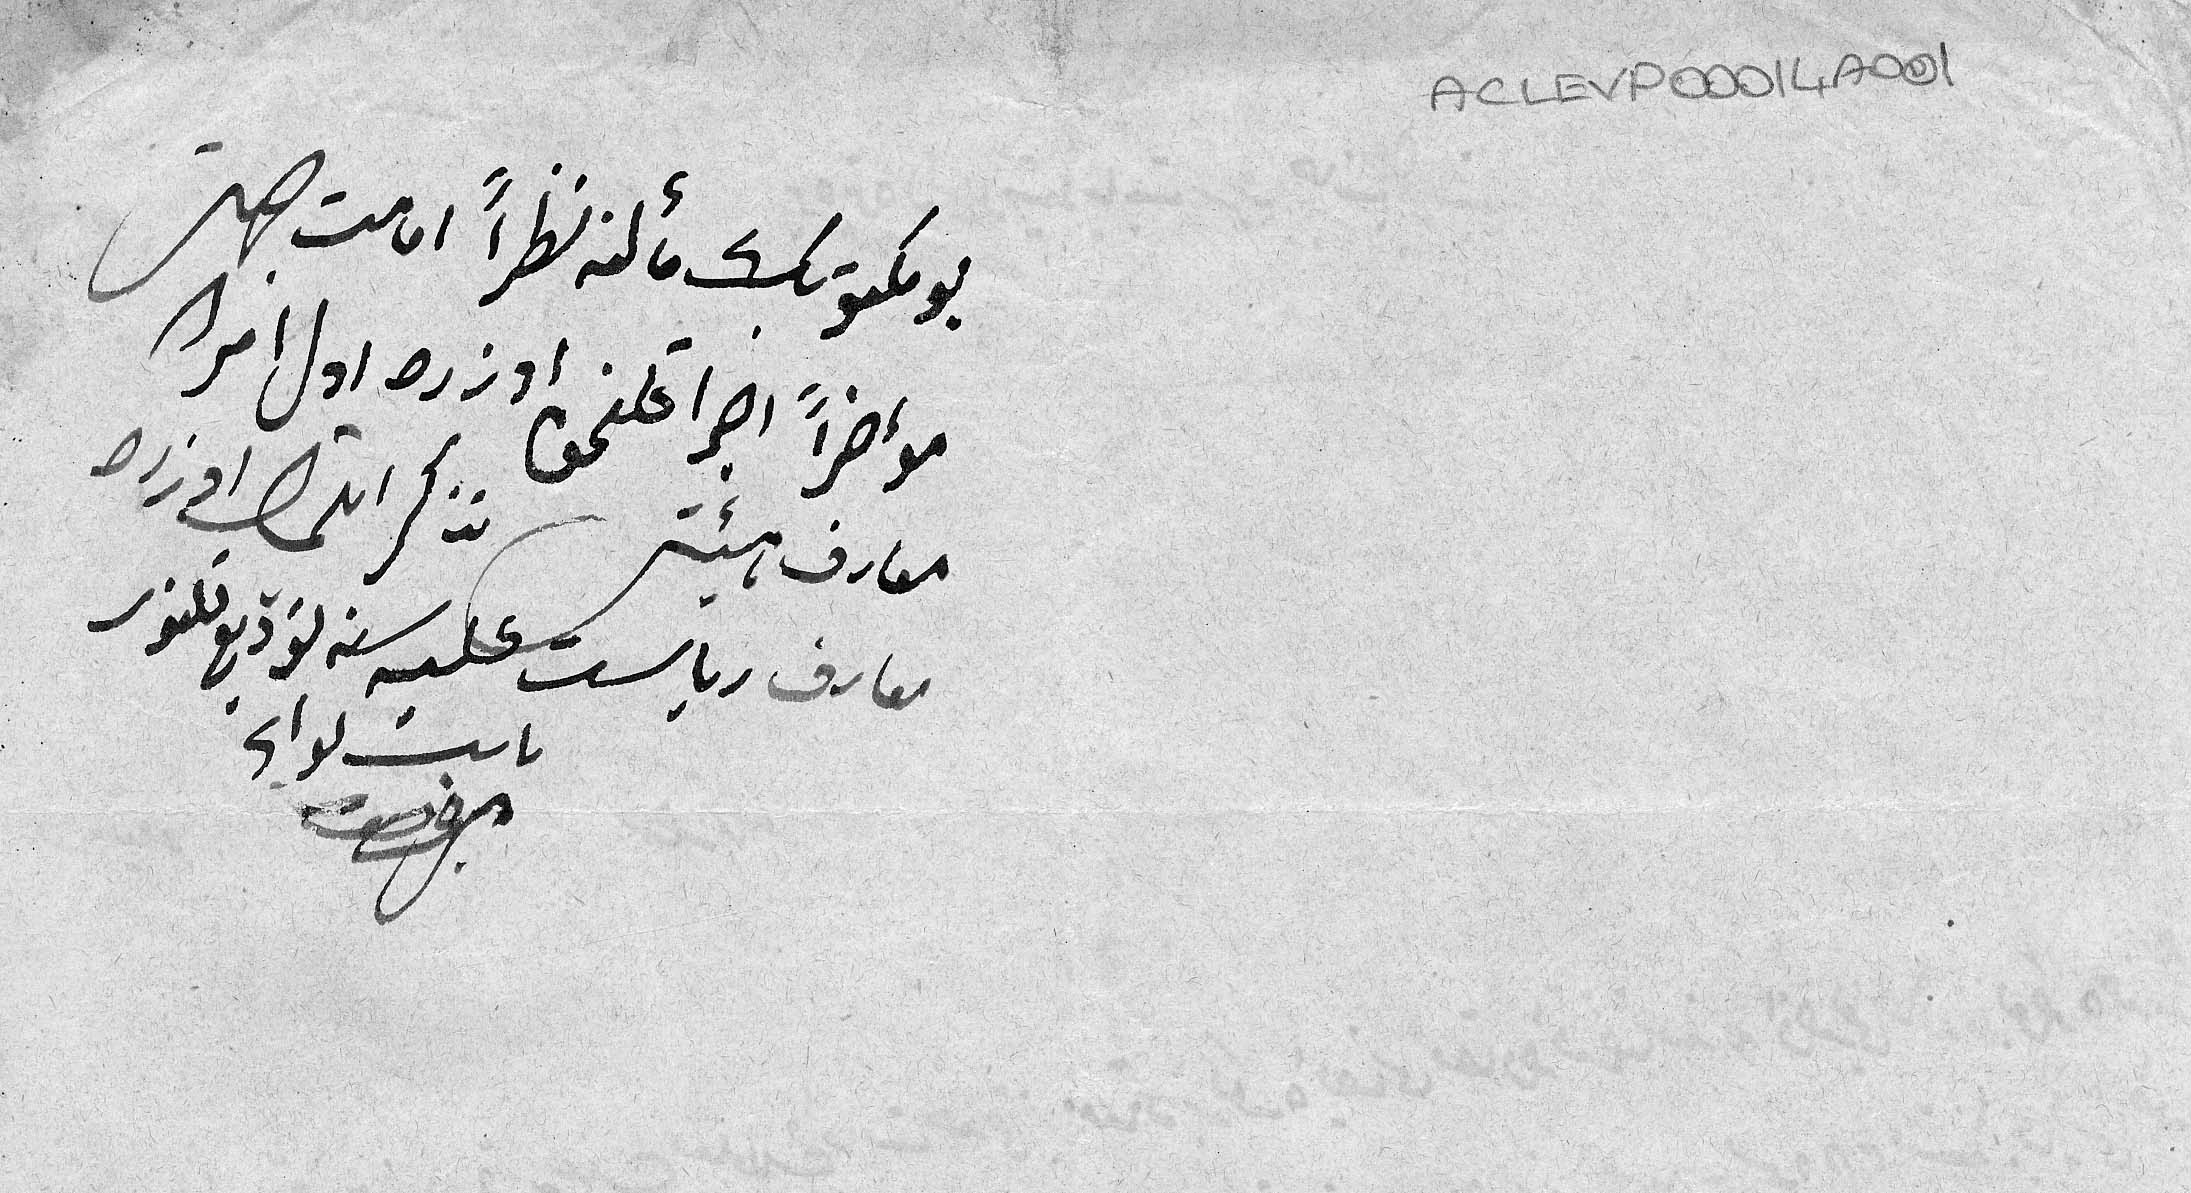 ACLEVP00014A001
بو مكتوبك مألنه نظراً امامت جهتى
مؤخراً اجرا قلنمق اوزره اول امرده
معارف هيئتى تذكر ايتمك اوزره
معارف رياست عليه سنه توديع قلنور
نائب لواى